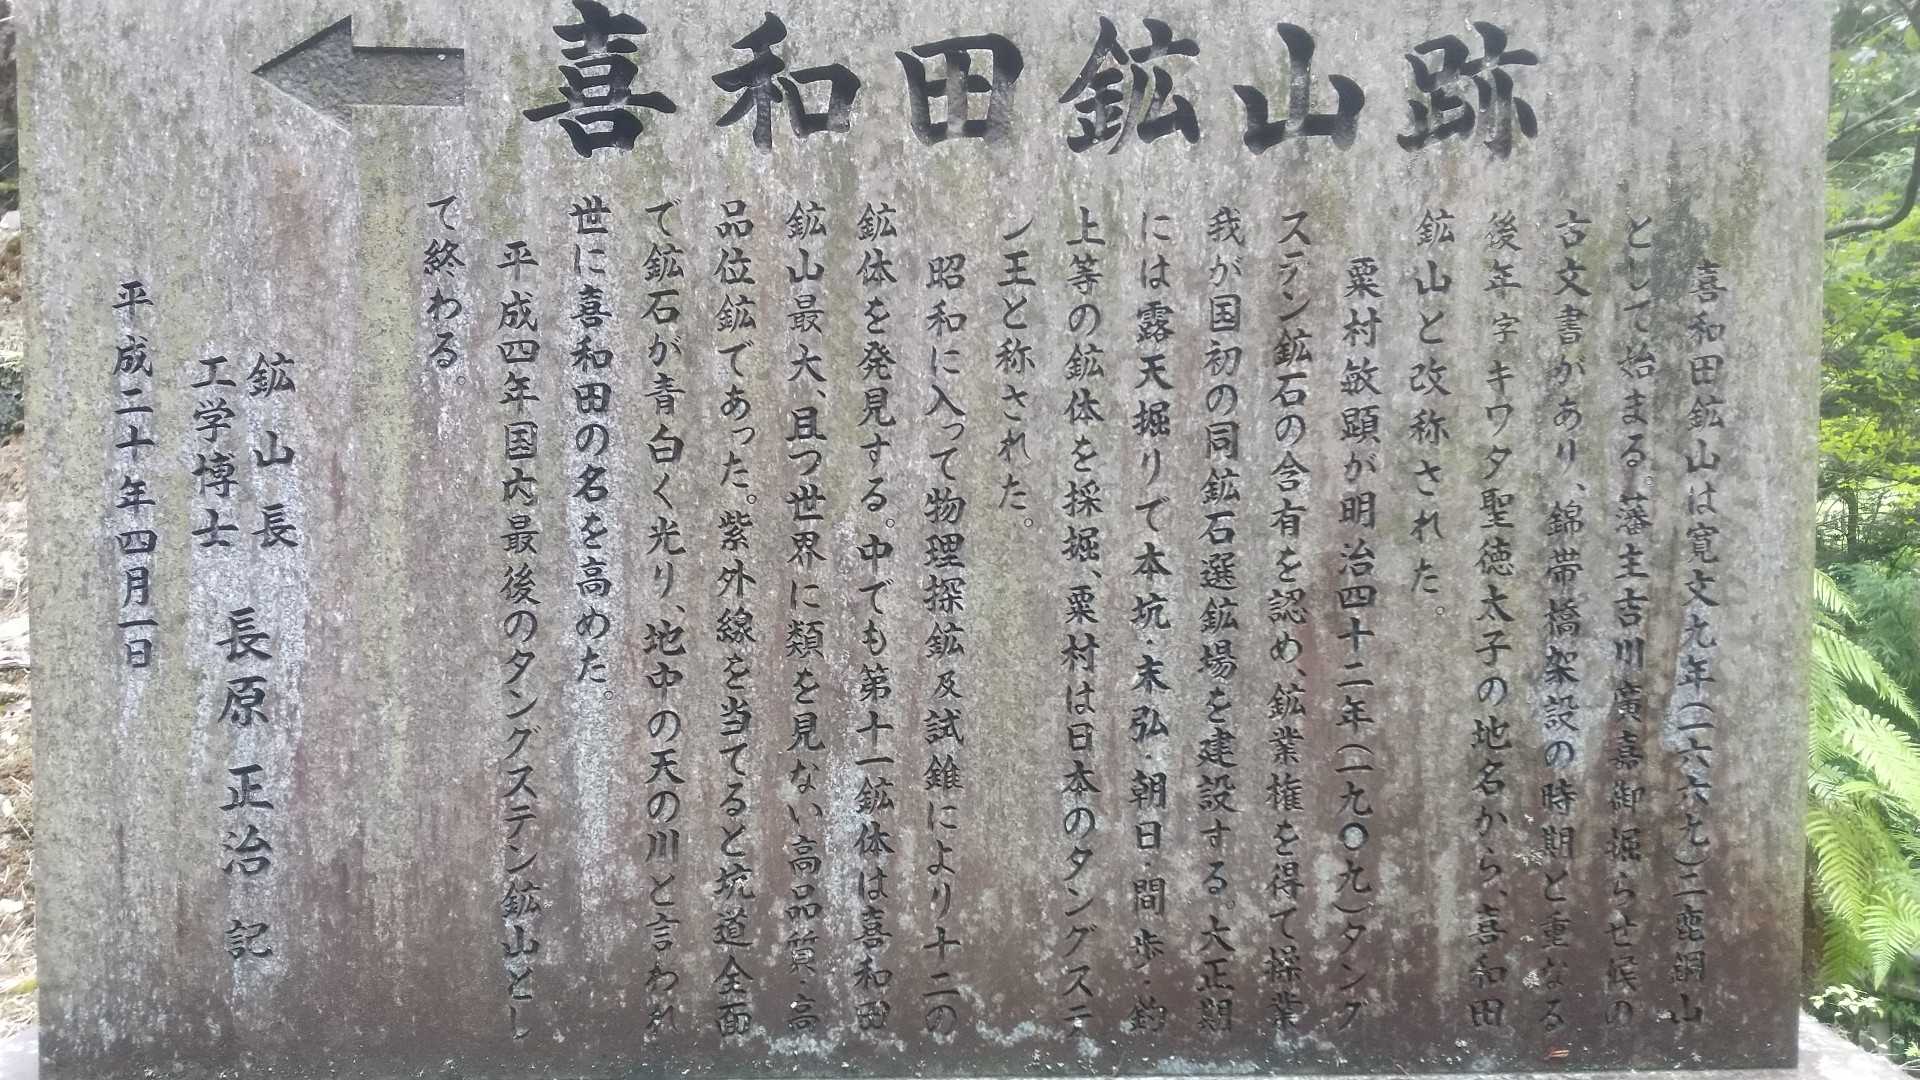 喜和田鉱山跡
喜和田鉱山は寛文九年(一六六九)二鹿銅山
として始まる。藩主吉川廣嘉御堀らせ候の
古文書があり、錦帯橋架設の時期と重なる
後年字キワタ聖徳太子の地名から、喜和田
鉱山と改称された。
粟村敏顕が明治四十二年(一九〇九)タング
ステン鉱石の含有を認め、鉱業権を得て操業
我が国初の同鉱石選鉱場を建設する。大正期
には露天堀りで本坑・末弘・朝日・間歩・鈞
上等の鉱体を採掘、粟村は日本のタングステ
ン王と称された。
昭和に入って物理探鉱及試錐により十二の
鉱体を発見する。中でも第十一鉱体は喜和田
鉱山最大、且つ世界に類を見ない高品質・高
品位鉱であった。紫外線を当てると坑道全面
で鉱石が青白く光り、地中の天の川と言われ
世に喜和田の名を高めた。
平成四年国内最後のタングステン鉱山とし
て終わる。
鉱山長
工学博士
長原正治 記
平成二十年四月一日